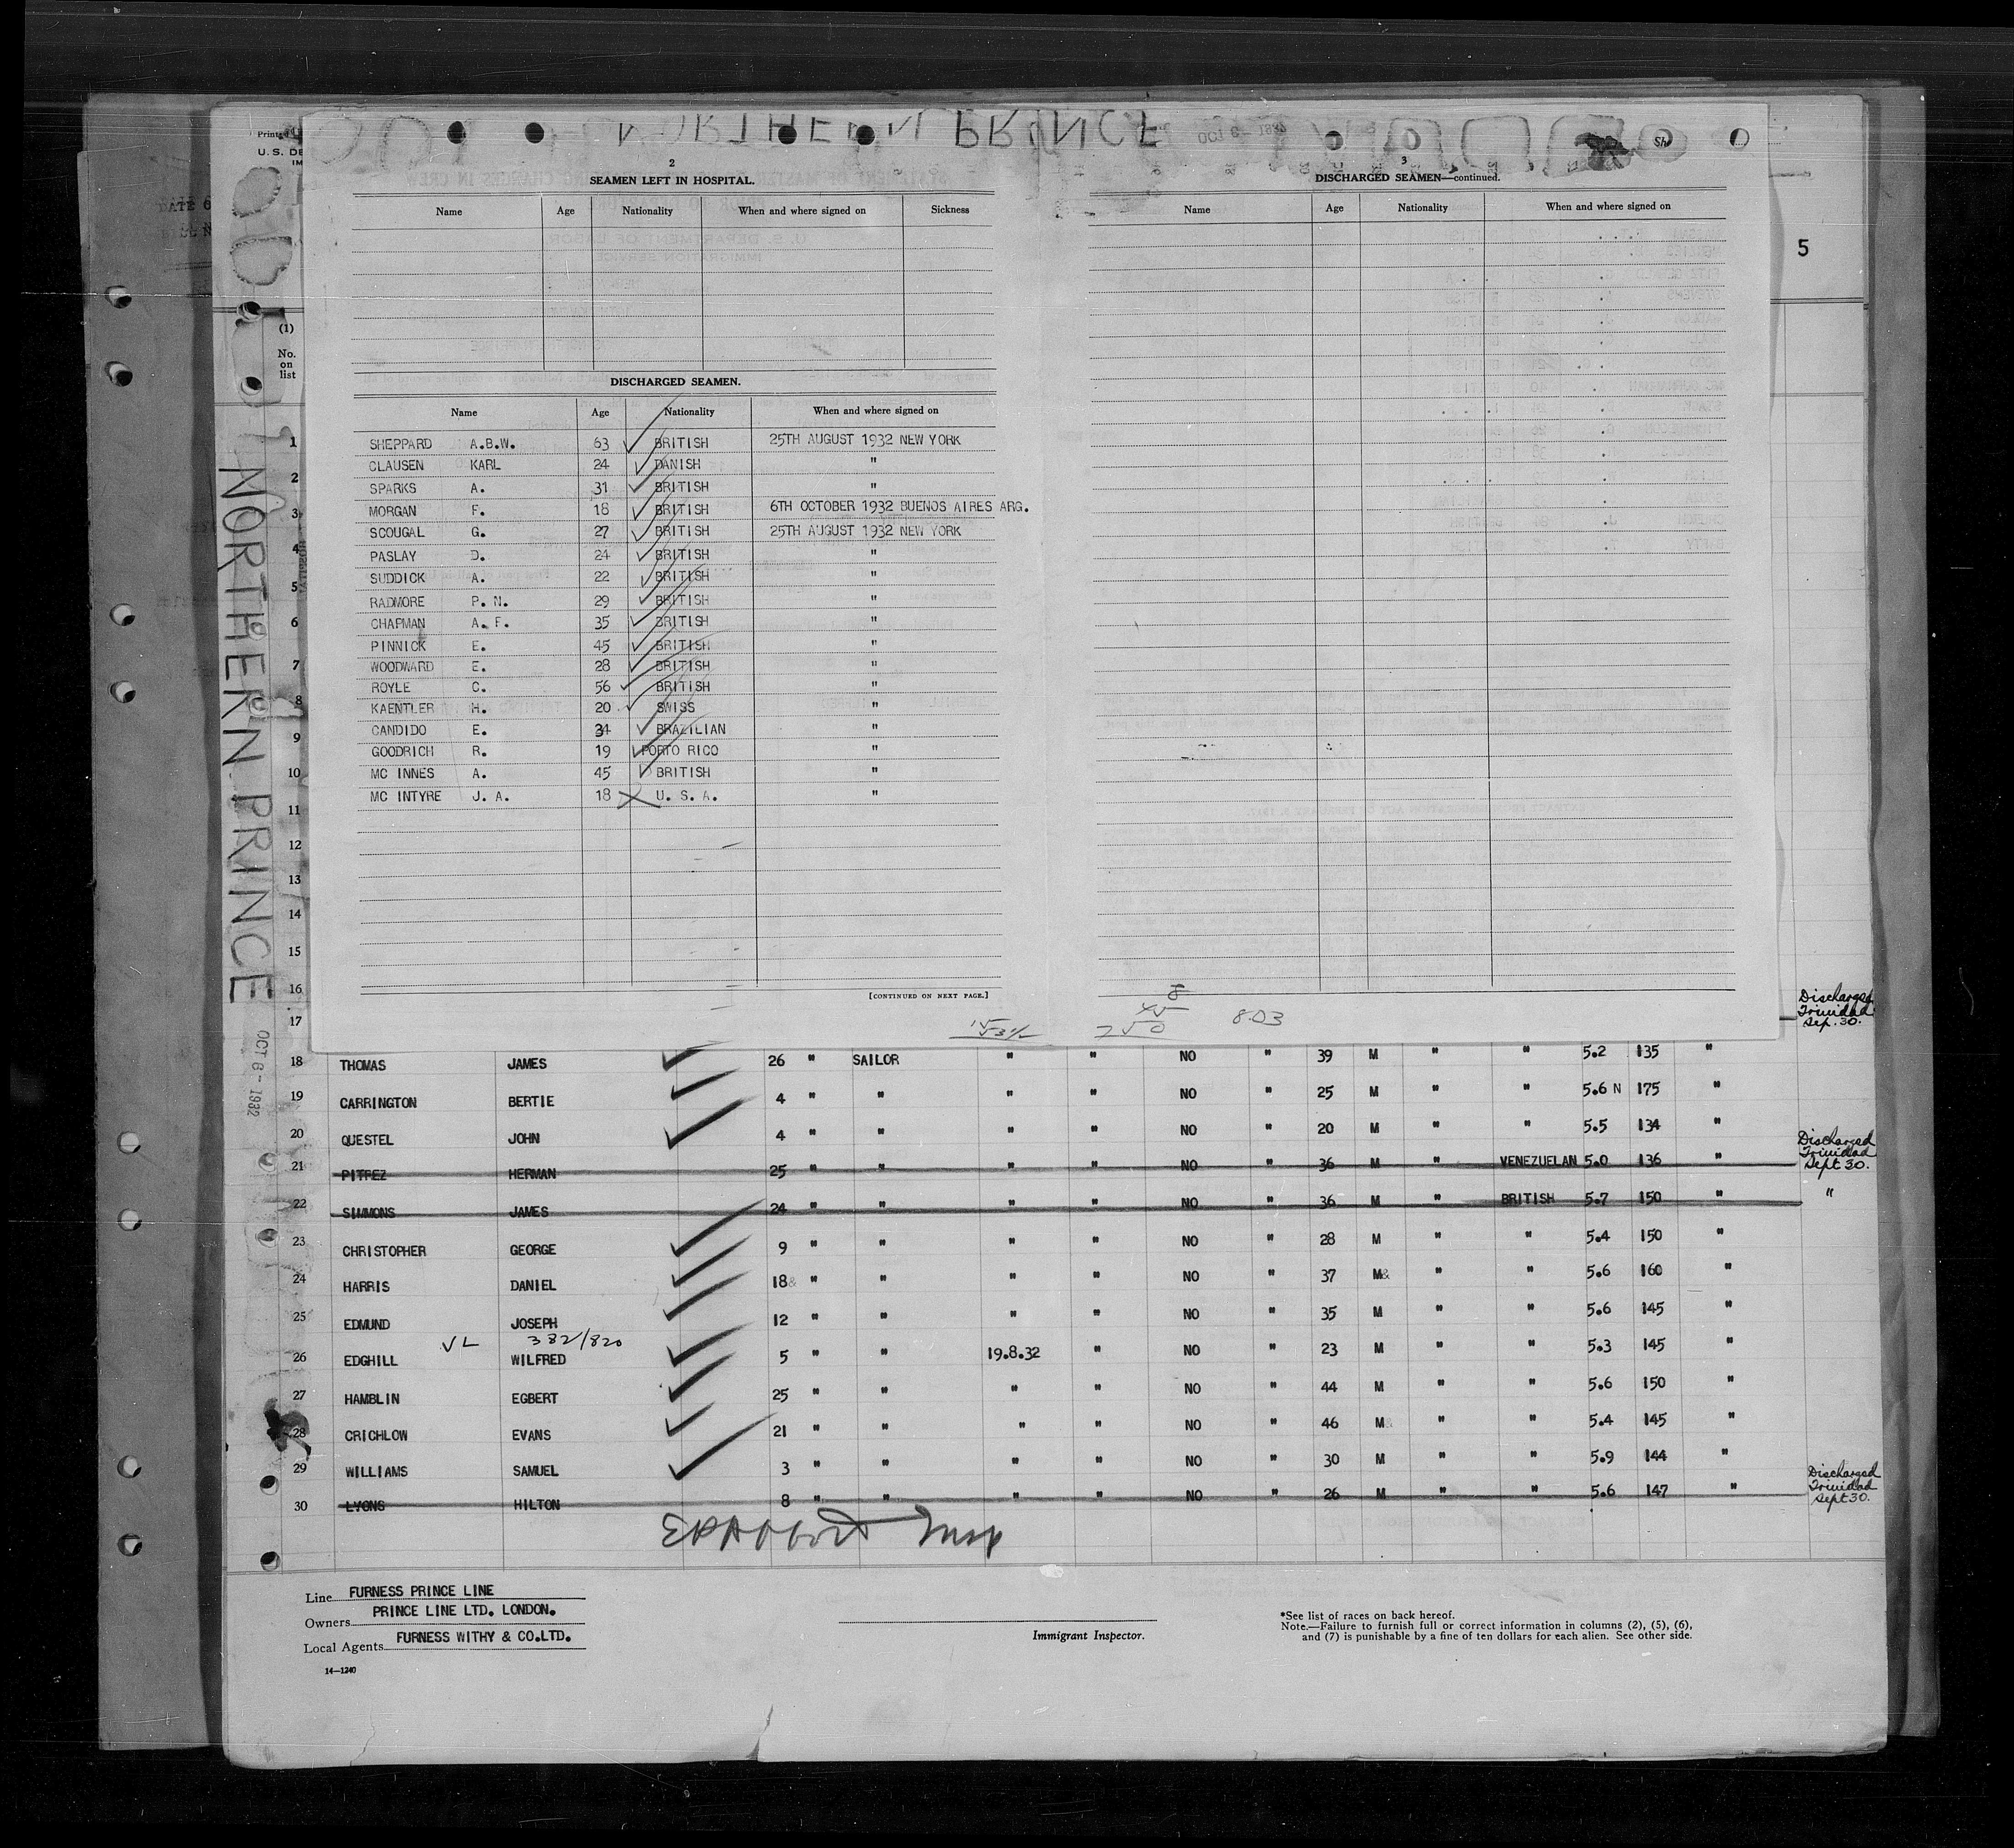 NORTHERN PRINCE
OCT 6 - 1932
2
SEAMEN LEFT IN HOSPITAL.
Name Age Nationality When and where signed on Sickness
DISCHARGED SEAMEN.
Name Age Nationality When and where signed on
SHEPPARD A.B.W. 63 BRITISH 25TH AUGUST 1932 NEW YORK
CLAUSEN KARL 24 DANISH "
SPARKS A. 31 BRITISH "
MORGAN F. 18 BRITISH 6TH OCTOBER 1932 BUENOS AIRES ARG.
SCOUGAL G. 27 BRITISH 25TH AUGUST 1932 NEW YORK
PASLAY D. 24 BRITISH "
SUDDICK A. 22 BRITISH "
RADMORE P. N. 29 BRITISH "
CHAPMAN A. F. 35 BRITISH "
PINNICK E. 45 BRITISH "
WOODWARD E. 28 BRITISH "
ROYLE C. 56 BRITISH "
KAENTLER H. 20 SWISS "
CANDIDO E. 34 BRAZILIAN "
GOODRICH R. 19 PORTO RICO "
MC INNES A. 45 BRITISH "
MC INTYRE J. A. 18 U. S. A. "
[CONTINUED ON NEXT PAGE.]
3
DISCHARGED SEAMEN—continued.
Name Age Nationality When and where signed on
803
5
Printed
U.S. DE
(1)
No.
on
list
1
2
3
4
5
6
7
8
9
10
11
12
13
14
15
16
17
Discharged
Trinidad
Sep. 30.
NORTHERN PRINCE
OCT 6 - 1932
18 THOMAS JAMES 26 " SAILOR " " NO " 39 M " " 5.2 135 "
19 CARRINGTON BERTIE 4 " " " " NO " 25 M " " 5.6 N 175 "
20 QUESTEL JOHN 4 " " " " NO " 20 M " " 5.5 134 "
21 PITREZ HERMAN 25 " " " " NO " 36 M " VENEZUELAN 5.0 136 " Discharged Trinidad Sept 30.
22 SIMMONS JAMES 24 " " " " NO " 36 M " BRITISH 5.7 150 " "
23 CHRISTOPHER GEORGE 9 " " " " NO " 28 M " " 5.4 150 "
24 HARRIS DANIEL 18 " " " " NO " 37 M " " 5.6 160 "
25 EDMUND JOSEPH 12 " " " " NO " 35 M " " 5.6 145 "
VL 382/820
26 EDGHILL WILFRED 5 " " 19.8.32 " NO " 23 M " " 5.3 145 "
27 HAMBLIN EGBERT 25 " " " " NO " 44 M " " 5.6 150 "
28 CRICHLOW EVANS 21 " " " " NO " 46 M " " 5.4 145 "
29 WILLIAMS SAMUEL 3 " " " " NO " 30 M " " 5.9 144 "
30 LYONS HILTON 8 " " " " NO " 26 M " " 5.6 147 " Discharged Trinidad Sept 30.
Line FURNESS PRINCE LINE
Owners PRINCE LINE LTD. LONDON.
Local Agents FURNESS WITHY & CO.LTD.
14—1240
Immigrant Inspector.
*See list of races on back hereof.
Note.—Failure to furnish full or correct information in columns (2), (5), (6),
and (7) is punishable by a fine of ten dollars for each alien. See other side.